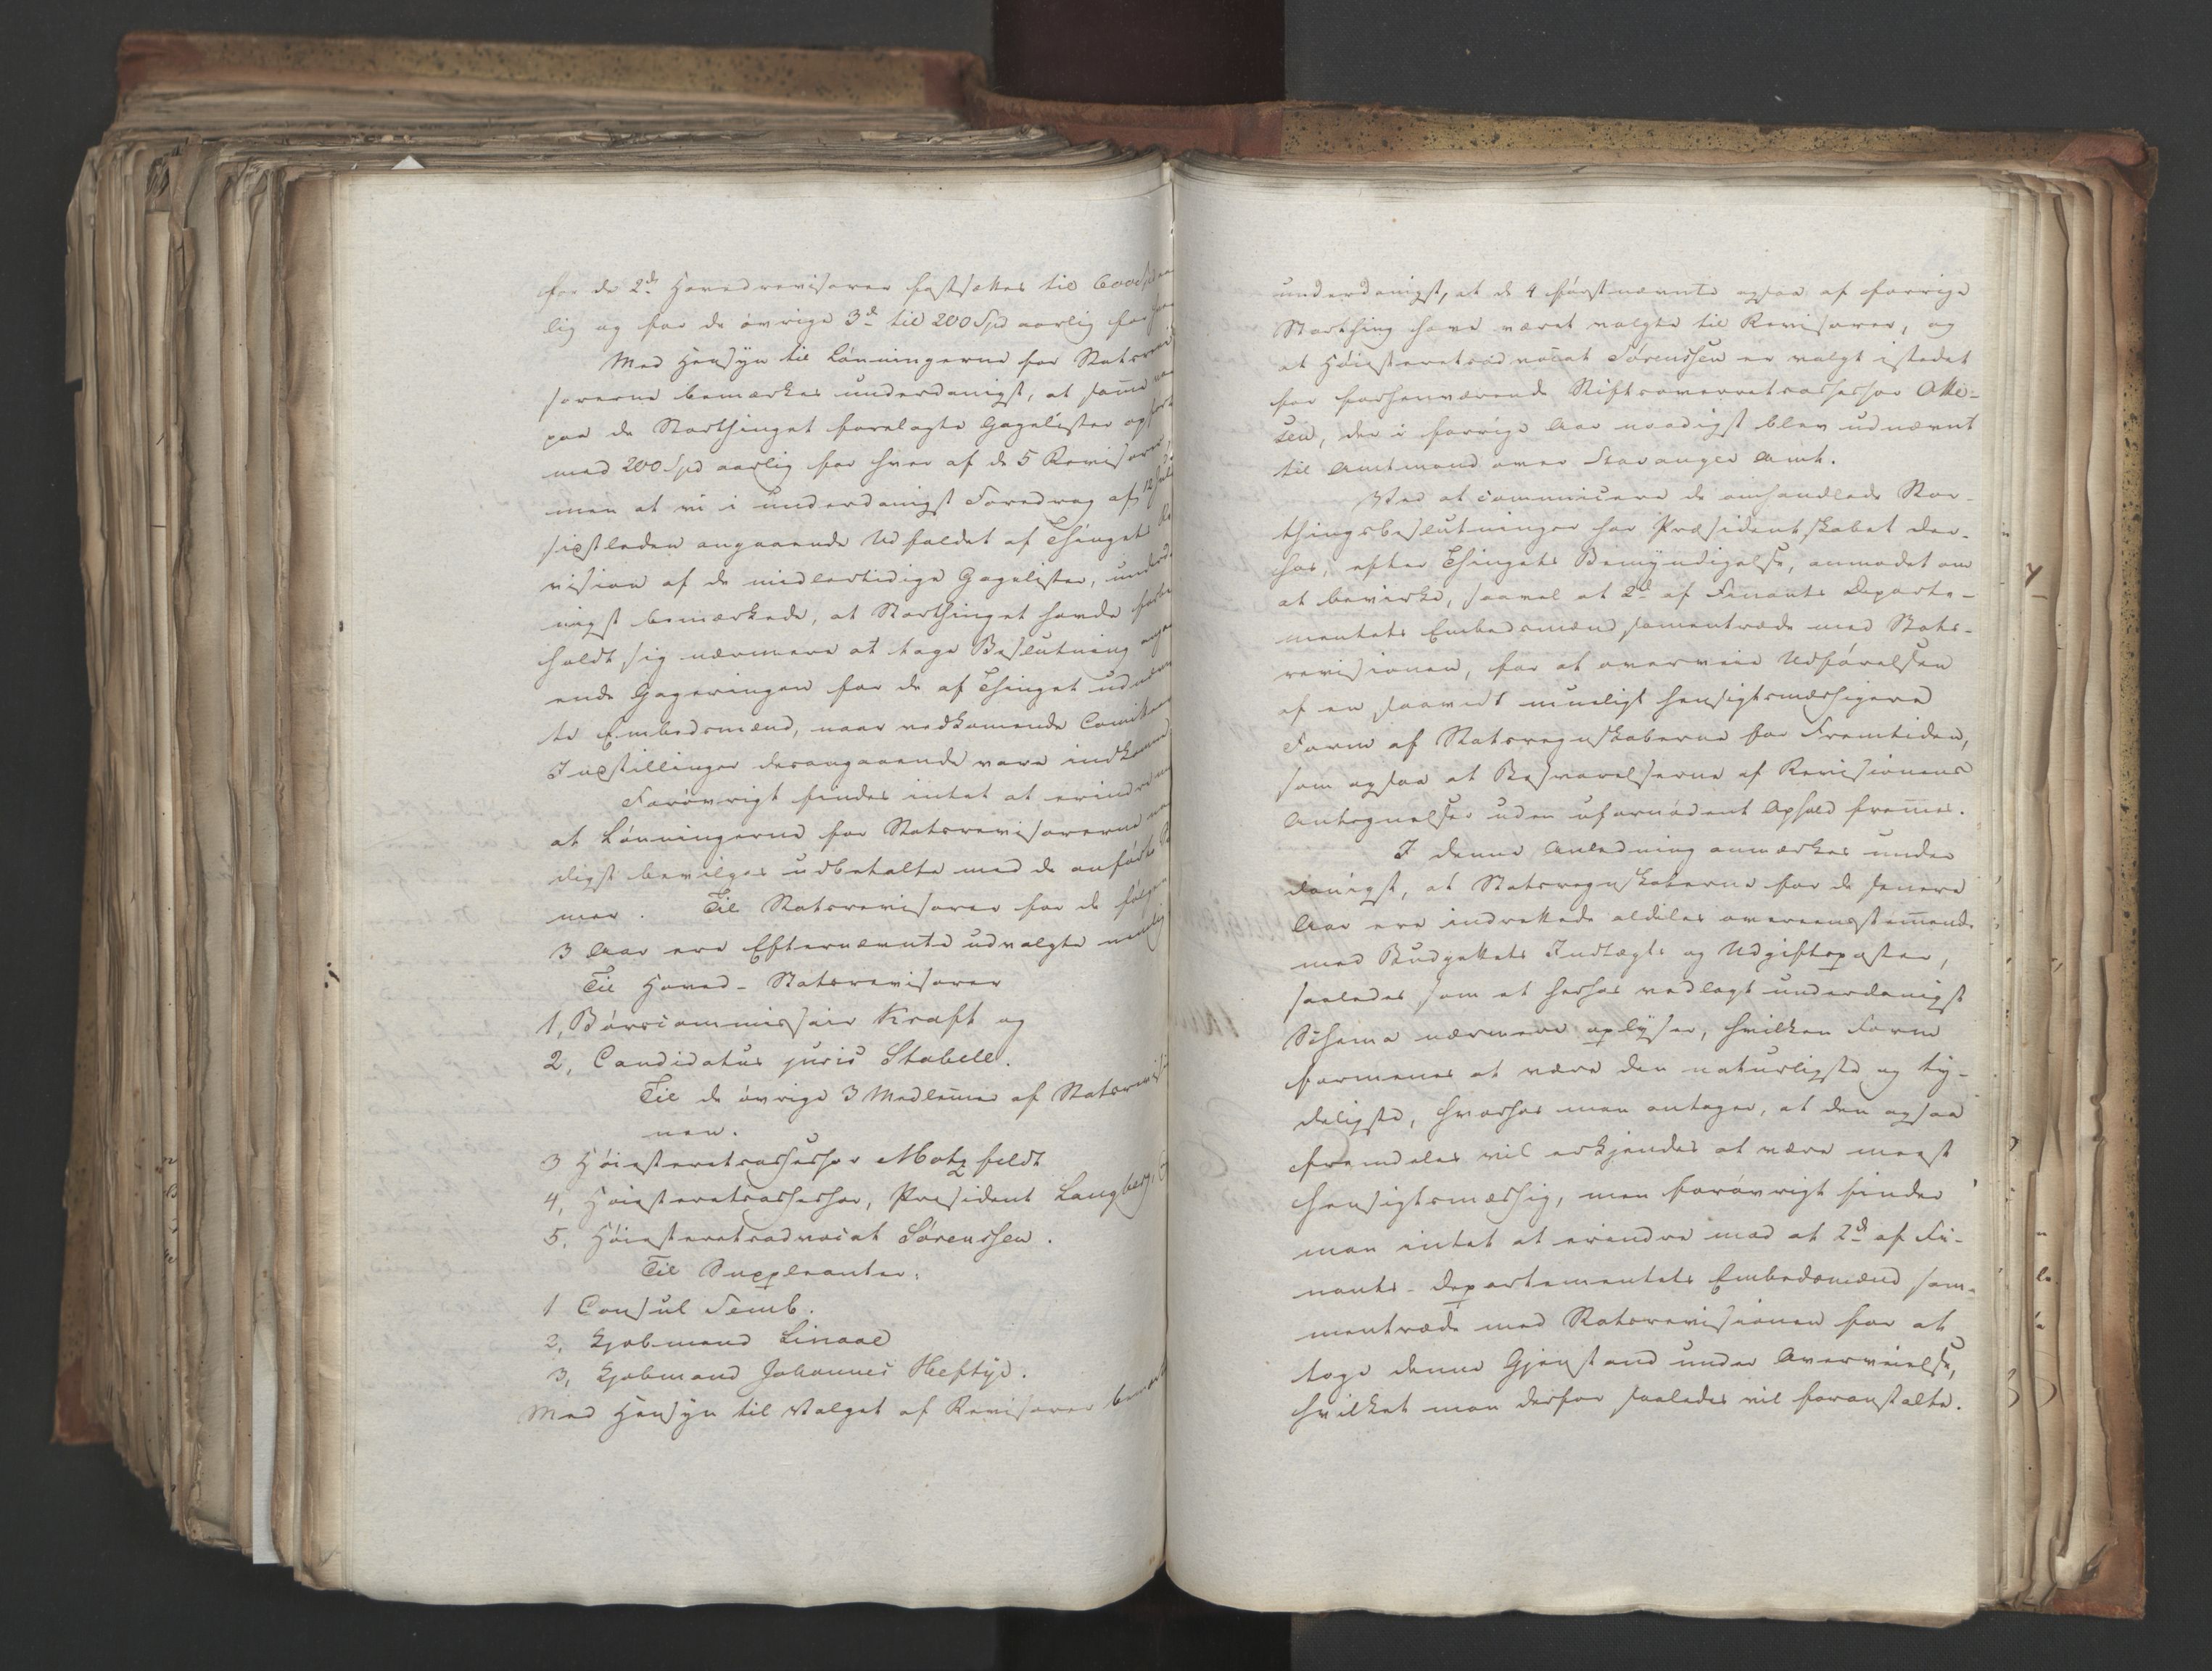 for de 2de Hovedrevisorer fastsættes til 600 Spd aar
lig og for de øvrige 3de til 200 Spd aarlig for hver
Med Hensyn til Lønningerne for Statsrevi
sorerne bemærkes underdanigst, at samme
paa de Storthinget forelagte Gagelister opført
med 200 Spd aarlig for hver af de 5 Revisorer,
men at vi i underdanigst Foredrag af 12 Juli
sidstleden angaaende Udfaldet af Thingets Re
vision af de midlertidige Gagelister, underda
nigst bemærkede, at Storthinget havde forbe
holdt sig nærmere at tage Beslutning angaa
ende Gageringen for de af Thinget udnævn
te Embedsmænd, naar vedkommende Comitees
Indstillinger desangaaende vare indkomne,
Forøvrigt findes intet at erindre mod
at Lønningerne for Statsrevisorerne naa
digst bevilges udbetalte med de anførte Sum
mer. Til Statsrevisorer for de følgende
3 Aar ere Efternævnte udvalgte nemlig
Til Hoved-Statsrevisorer
1, Børscommissair Kraft og
2, Candidatus juris Stabell.
Til de øvrige 3 Medlemmer af Statsrevisio
nen.
3 Høiesteretsassessor Motzfeldt
4, Høiesteretsassessor, President Langberg, og
5, Høiesteretsadvocat Sørenssen.
Til Suppleanter:
1 Consul Semb.
2, Kjøbmand Linaae
3, Kjøbmand Johannes Heftye.
Med Hensyn til Valget af Revisorer bemærkes
underdanigst, at de 4 førstnævnte ogsaa af forrige
Storthing have været valgte til Revisorer, og
at Høiesteretsadvocat Sørenssen er valgt istedet
for forhenværende Stiftsoverretsassessor Otte-
sen, der i forrige Aar naadigst blev udnævnt
til Amtmand over Stavanger Amt.
Ved at communicere de omhandlede Stor-
thingsbeslutninger har Præsidentskabet der-
hos, efter Thingets Bemyndigelse, anmodet om
at bevirke, saavel at 2de af Finants Departe-
mentets Embedsmænd sammentræde med Stats-
revisionen, for at overveie Udførelsen
af en saavidt mueligt hensigtsmæssigere
Form af Statsregnskaberne for Fremtiden,
som ogsaa at Besvarelserne af Revisionens
Antegnelser uden ufornødent Ophold fremmes.
I denne Anledning anmærkes under
danigst, at Statsregnskaberne for de senere
Aar ere indrettede aldeles overeensstemmende
med Budgettets Indtægts og Udgiftsposter,
saaledes som et herhos vedlagt underdanigst
Schema nærmere oplyser, hvilken Form
formenes at være den naturligste og ty-
deligste, hvorhos man antager, at den ogsaa
fremdeles vil erkjendes at være meest
hensigtsmæssig, men forøvrigt finder
man intet at erindre mod at 2de af Fi-
nants-Departementets Embedsmænd sam-
mentræde med Statsrevisionen for at
tage denne Gjenstand under Overveielse,
hvilket man derfor saaledes vil foranstalte.